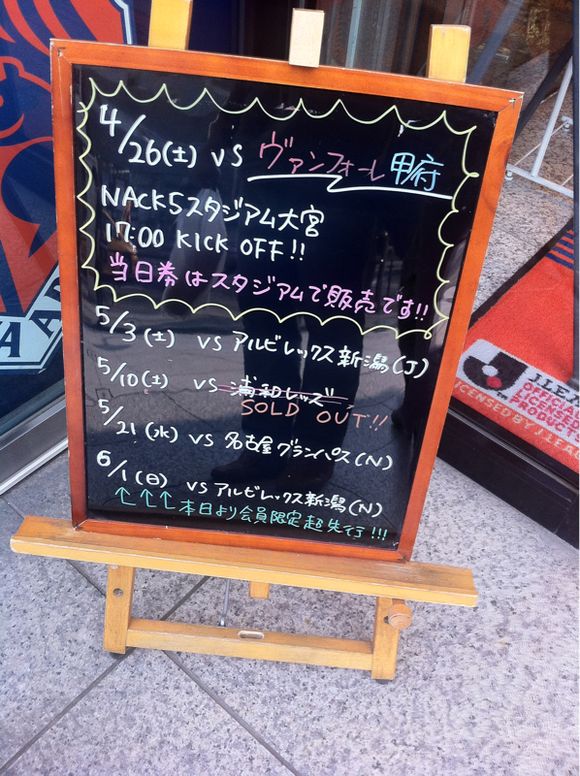 4/26(土) VS ヴァンフォーレ甲府
NACK5スタジアム大宮
17:00 KICK OFF!!
当日券はスタジアムで販売です!!
5/3(土) VS アルビレックス新潟(J)
5/10(土) VS 浦和レッズ
SOLD OUT!!
5/21(水) VS 名古屋グランパス(N)
6/1(日) VS アルビレックス新潟(N)
↑↑↑本日より会員限定超先行!!!
J.LEAGUE
OFFICIAL
LICENSED
PRODUCT